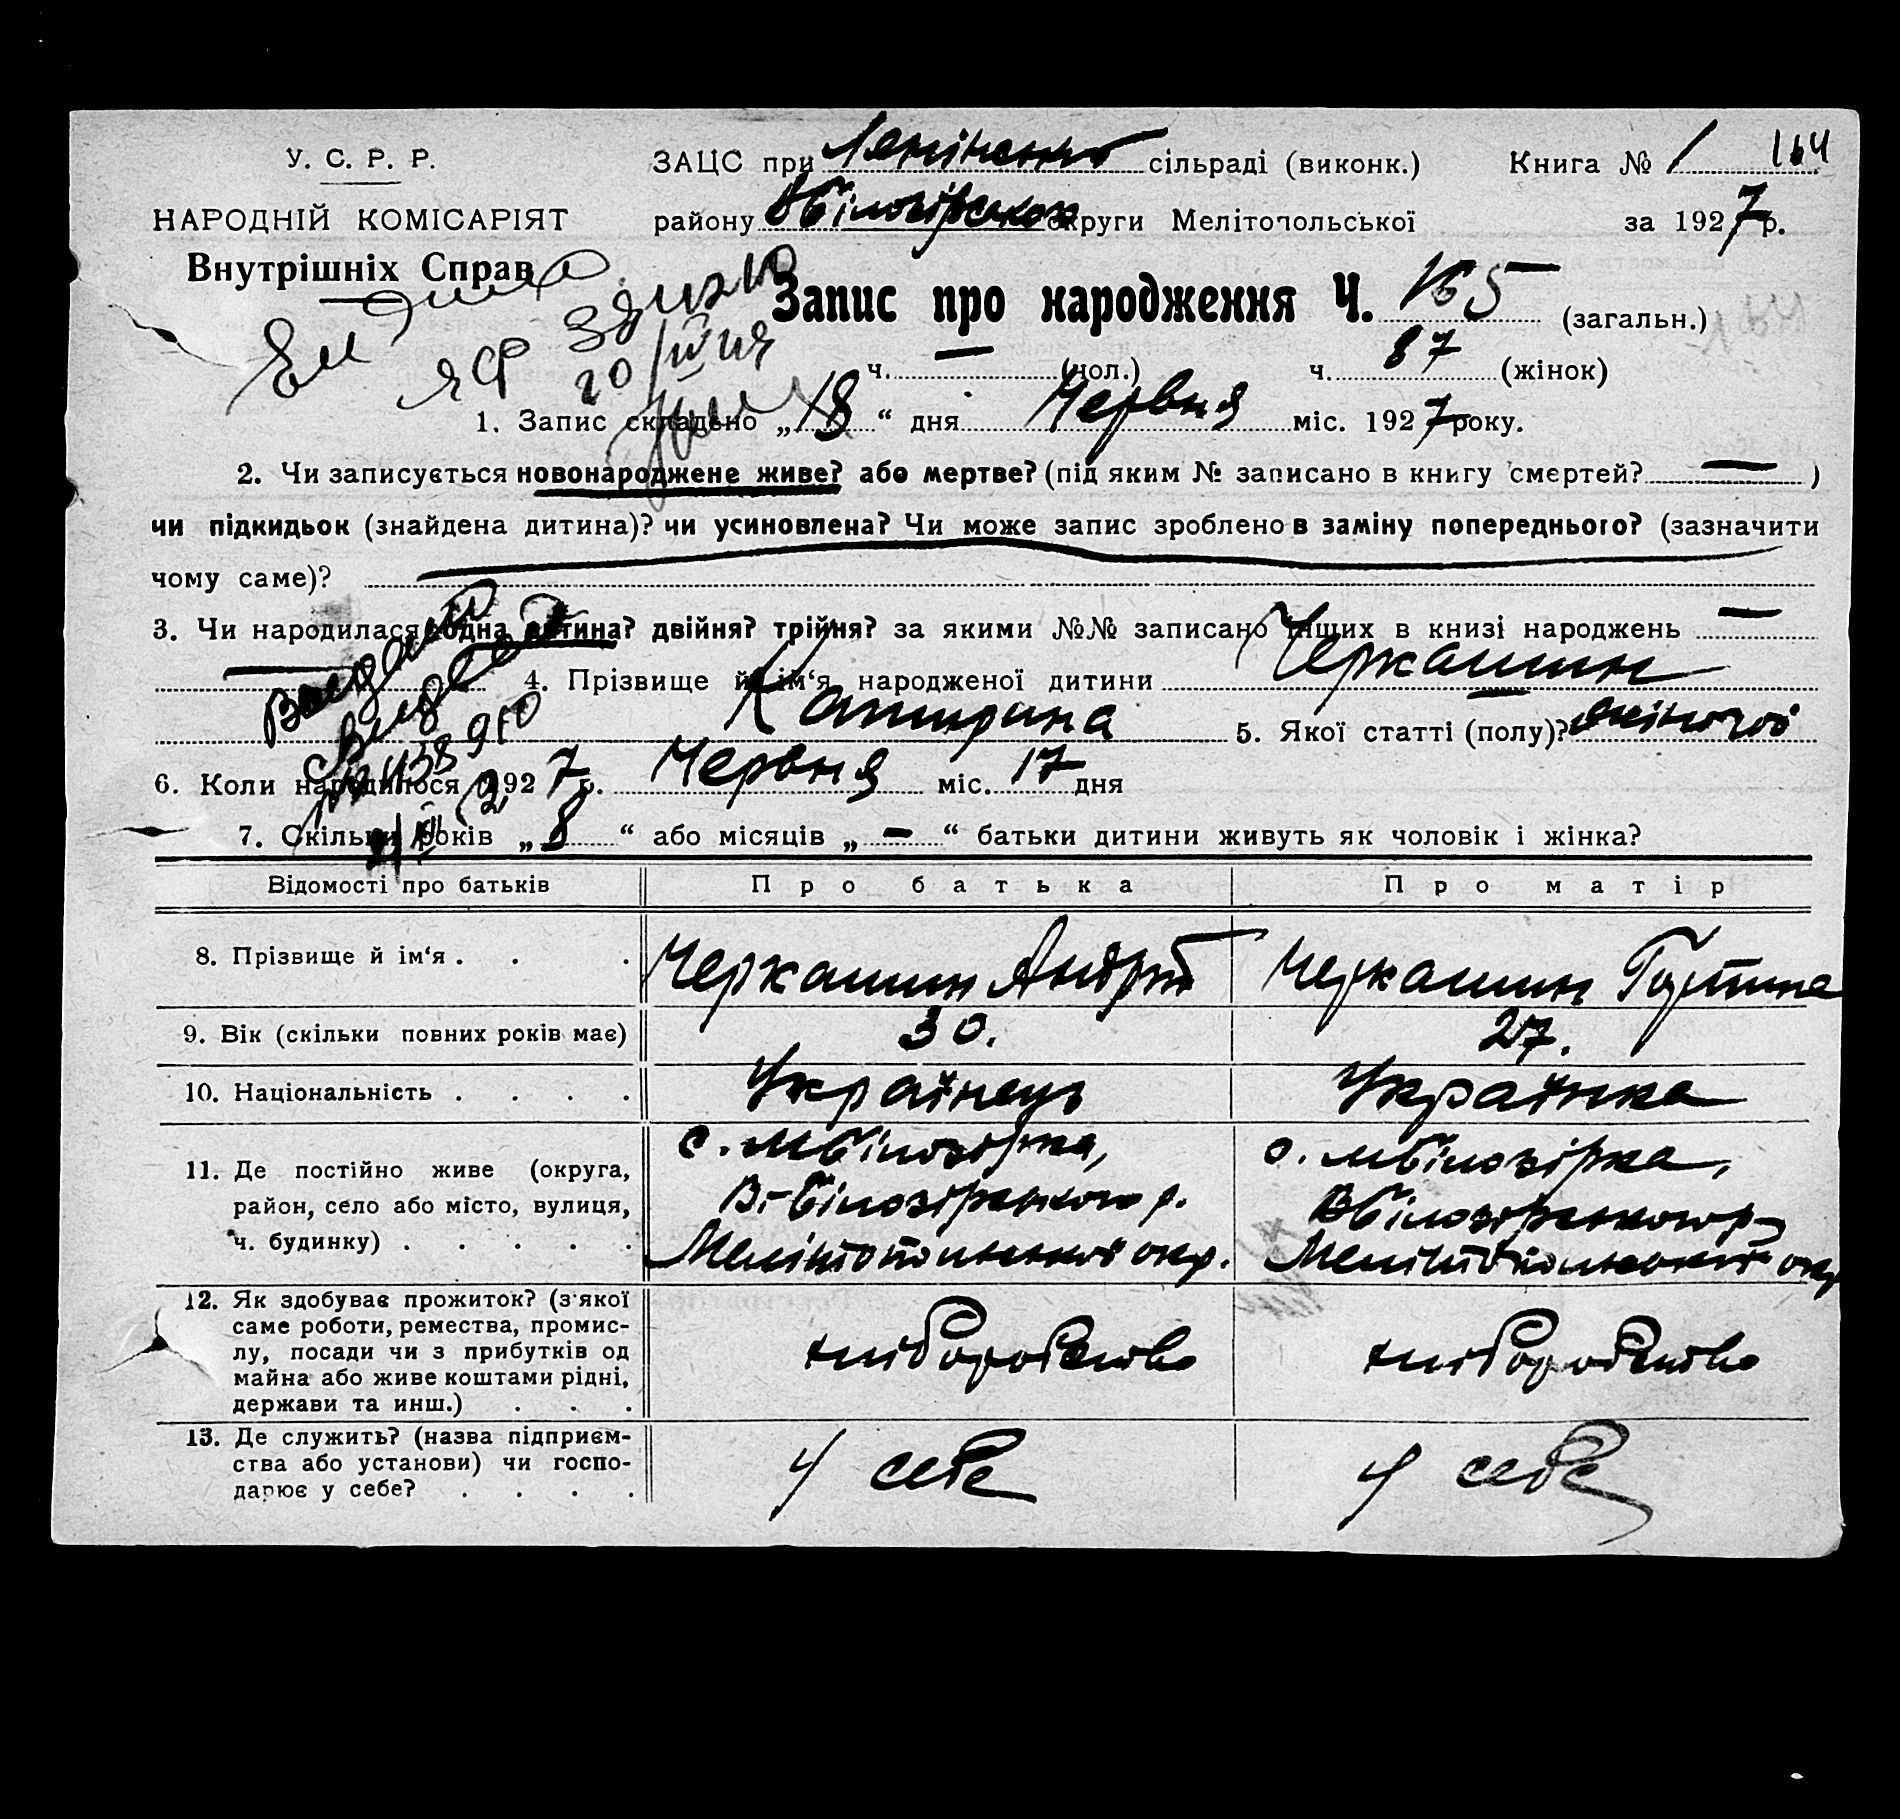 У. С. Р. Р.
НАРОДНІЙ КОМІСАРІЯТ
Внутрішніх Справ
ЗАЦС при сільраді (виконк.) Книга № 1 164
району округи Мелітопольської за 1927 р.
Запис про народження Ч. 165 (загальн.)
ч. — (чол.) ч. 87 (жінок)
1. Запис складено „18“ дня Червня міс. 1927 року.
2. Чи записується новонароджене живе? або мертве? (під яким № записано в книгу смертей? — )
чи підкидьок (знайдена дитина)? чи усиновлена? Чи може запис зроблено в заміну попереднього? (зазначити
чому саме)?
3. Чи народилася одна дитина? двійня? трійня? за якими №№ записано інших в книзі народжень —
— 4. Прізвище й ім‘я народженої дитини Черкашин
Катирина 5. Якої статті (полу)? жіночої
6. Коли народилося 1927 р. Червня міс. 17 дня
7. Скільки років „8“ або місяців „—“ батьки дитини живуть як чоловік і жінка?
Відомості про батьків Про батька Про матір
8. Прізвище й ім‘я . . . Черкашин Андрій Черкашин
9. Вік (скільки повних років має) 30. 27.
10. Національність . . . . Українець Українка
11. Де постійно живе (округа,
район, село або місто, вулиця,
ч. будинку) . . . . .
с. мбілозірка,
В-білозірського р.
Мелітопольської окр.
с. мбілозірка,
Вбілозірського р
Мелітопольської окр
12. Як здобуває прожиток? (з'якої
саме роботи, ремества, промис-
лу, посади чи з прибутків од
майна або живе коштами рідні,
держави та инш.) . . .
хліборобство хліборобство
13. Де служить? (назва підприєм-
ства або установи) чи госпо-
дарює у себе? . . . .
У себе У себе